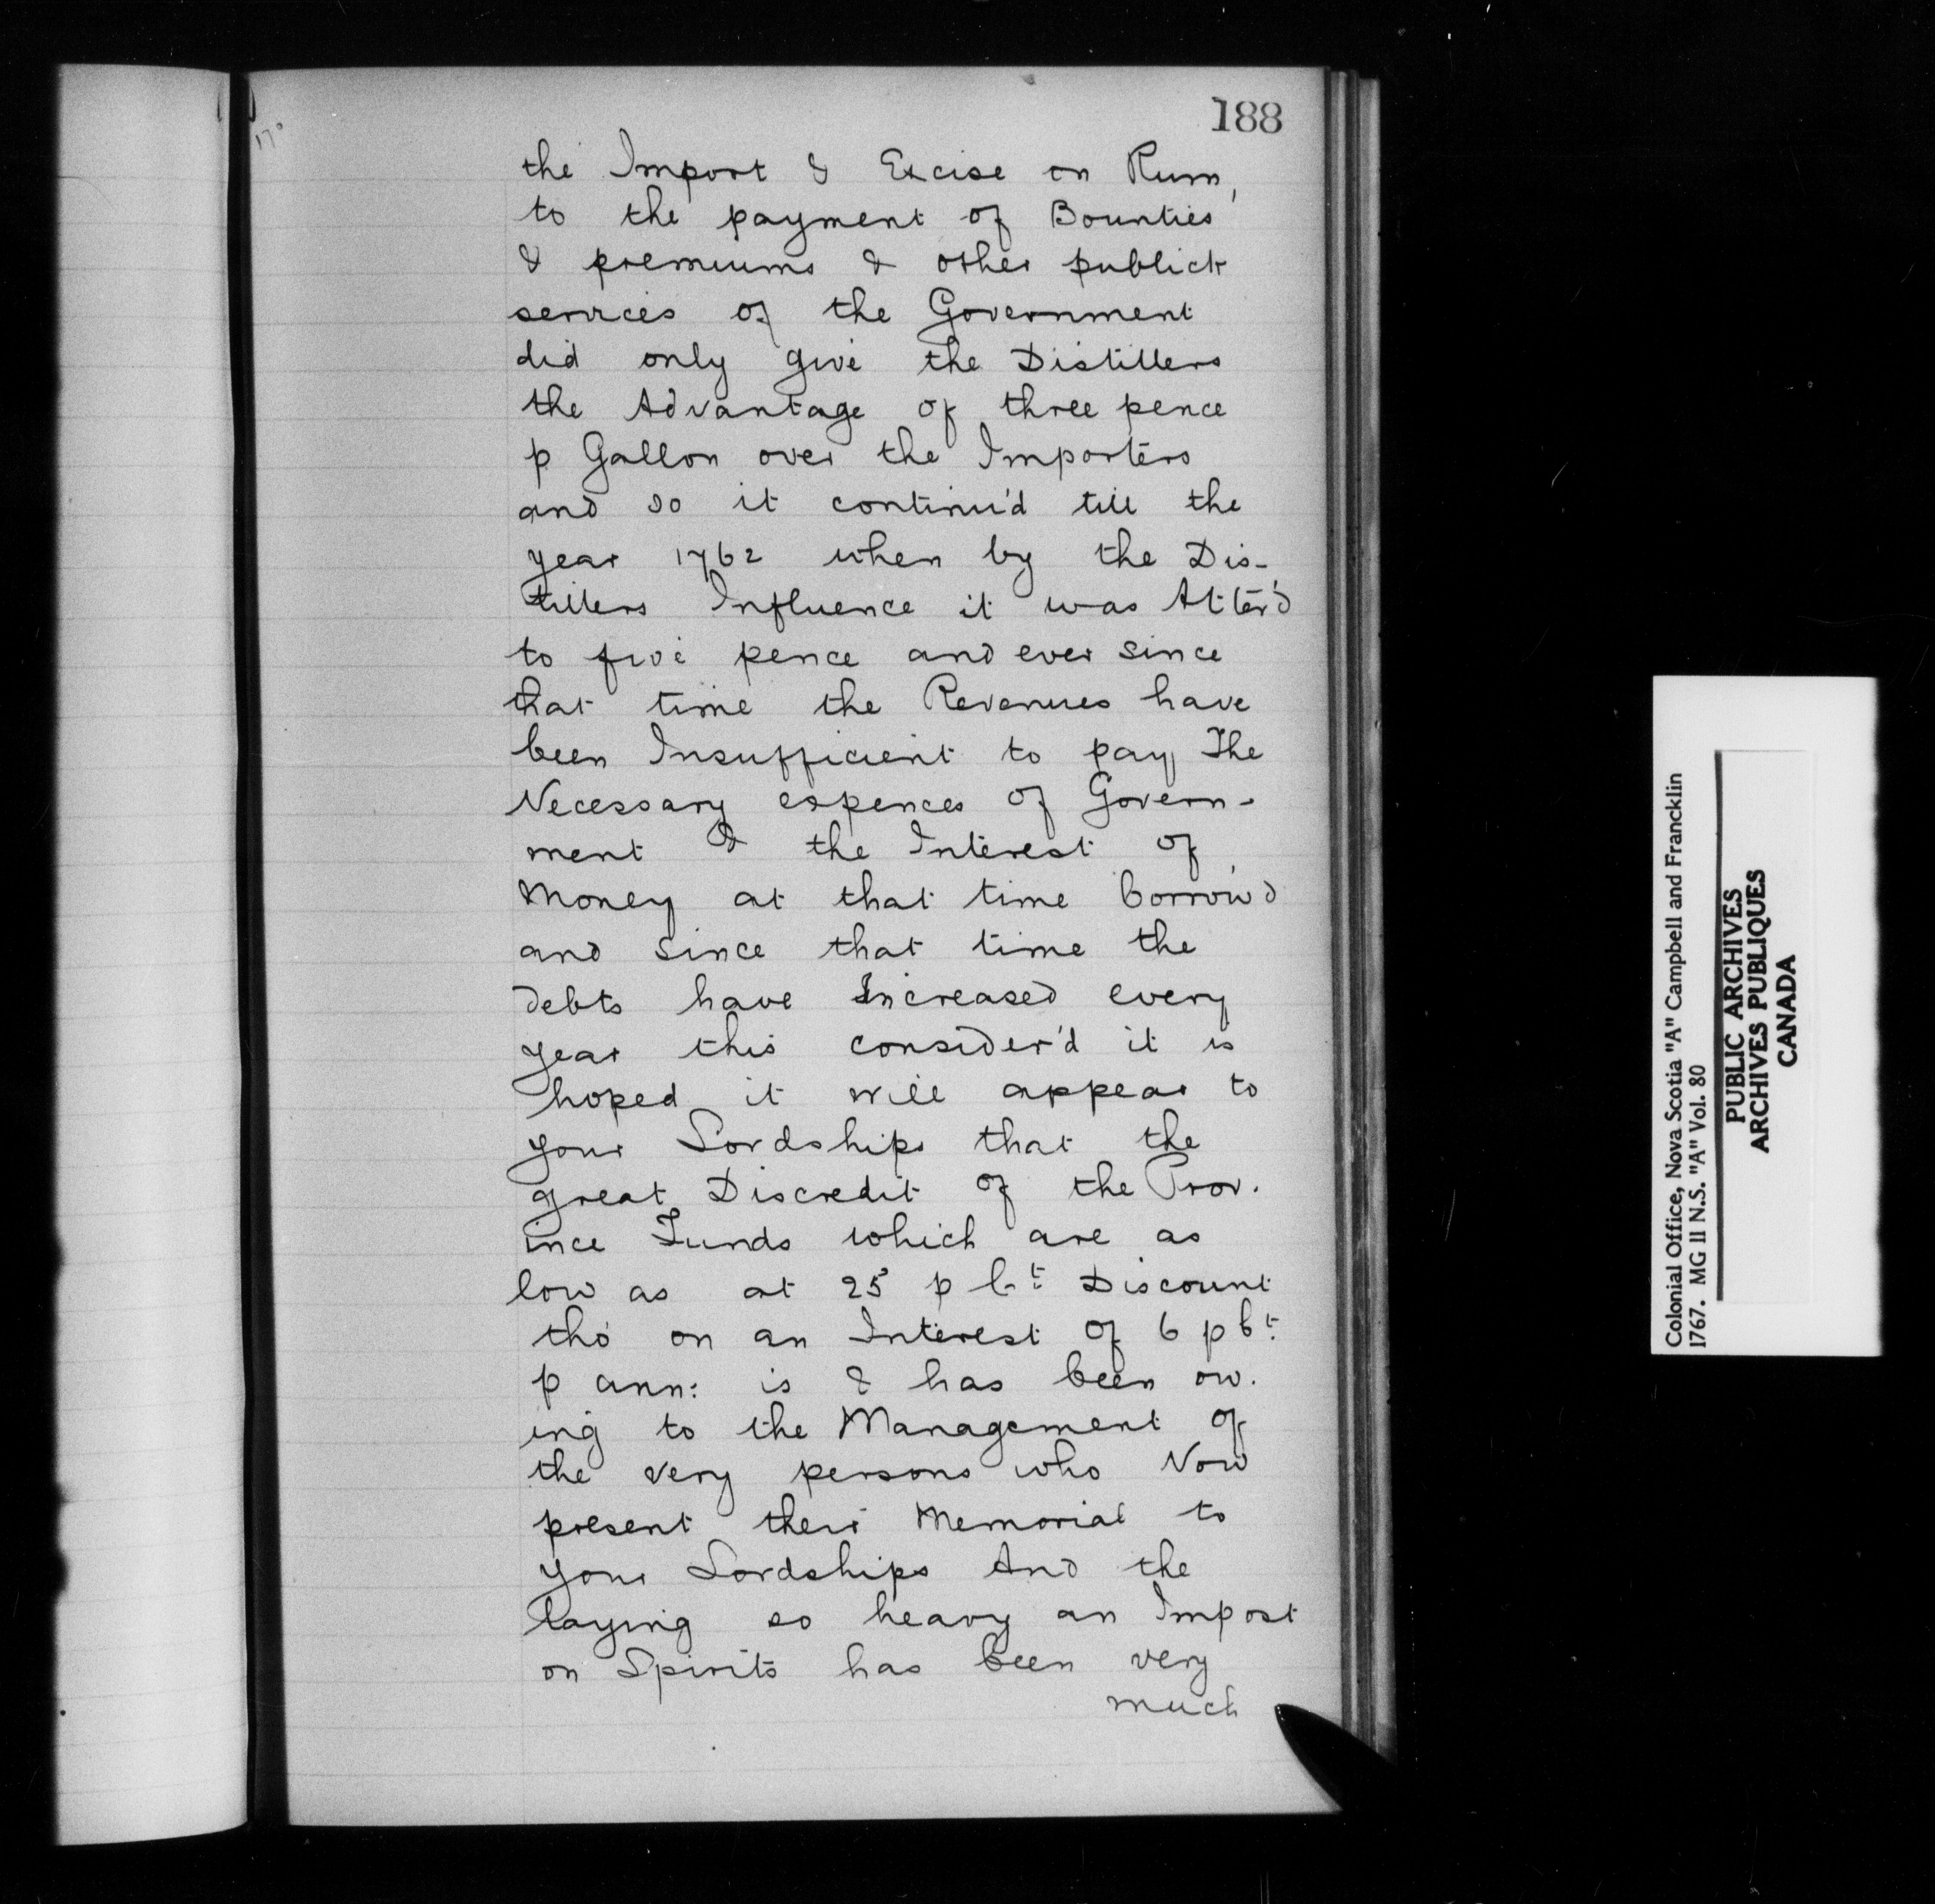 188
the Import & Excise on Rum,
to the payment of Bounties
& premiums & other publick
services of the Government
did only give the Distillers
the Advantage of three pence
p Gallon over the Importers
and so it continu'd till the
year 1762 when by the Dis-
tillers Influence it was Alter'd
to five pence and ever since
that time the Revenues have
been Insufficient to pay The
Necessary expences of Govern-
ment & the Interest of
Money at that time borrow'd
and since that time the
debts have Increased every
year this consider'd it is
hoped it will appear to
your Lordships that the
great Discredit of the Prov.
ince Funds which are as
low as at 25 p Ct Discount
tho' on an Interest of 6 p Ct
p ann: is & has been ow.
ing to the Management of
the very persons who Now
present their Memorial to
your Lordships And the
laying so heavy an Impost
on Spirits has been very
much
Colonial Office, Nova Scotia "A" Campbell and Francklin
1767. MG 11 N.S. "A" Vol. 80
PUBLIC ARCHIVES
ARCHIVES PUBLIQUES
CANADA